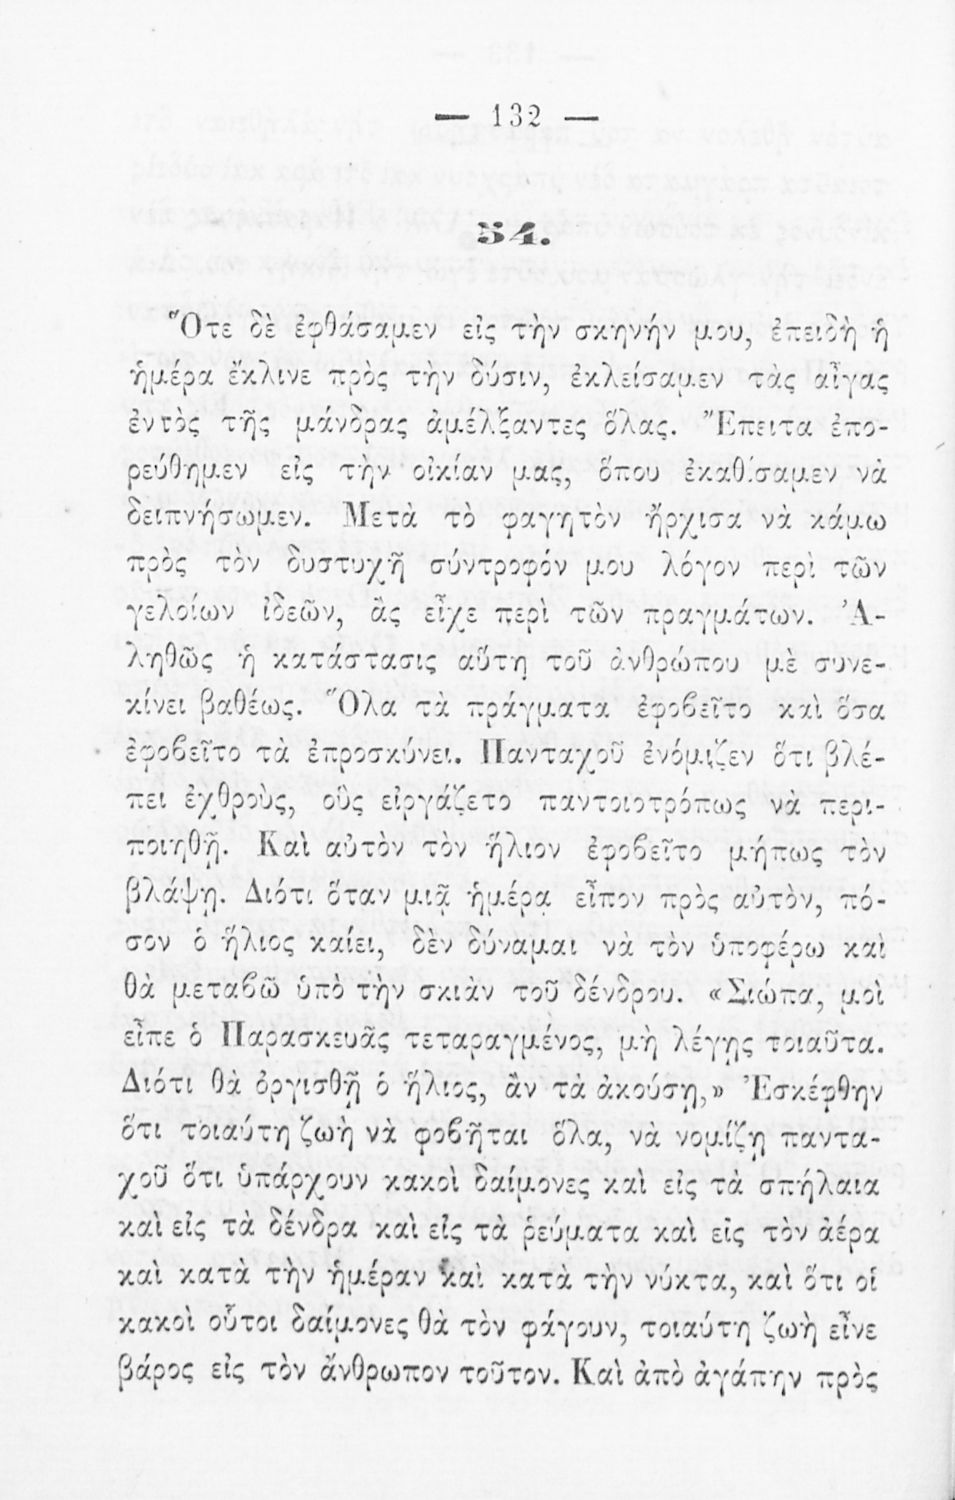 — 132 —
54.
Ὅτε δὲ ἐφθάσαμεν εἰς τὴν σκηνήν μου, ἐπειδὴ ἡ
ἡμέρα ἔκλινε πρὸς τὴν δύσιν, ἐκλείσαμεν τὰς αἶγας
ἐντὸς τῆς μάνδρας ἀμέλξαντες ὅλας. Ἔπειτα ἐπο-
ρεύθημεν εἰς τὴν οἰκίαν μας, ὅπου ἐκαθίσαμεν νὰ
δειπνήσωμεν. Μετὰ τὸ φαγητὸν ἤρχισα νὰ κάμω
πρὸς τὸν δυστυχῆ σύντροφόν μου λόγον περὶ τῶν
γελοίων ἰδεῶν, ἃς εἶχε περὶ τῶν πραγμάτων. Ἀ-
ληθῶς ἡ κατάστασις αὕτη τοῦ ἀνθρώπου μὲ συνε-
κίνει βαθέως. Ὅλα τὰ πράγματα ἐφοβεῖτο καὶ ὅσα
ἐφοβεῖτο τὰ ἐπροσκύνει. Πανταχοῦ ἐνόμιζεν ὅτι βλέ-
πει ἐχθροὺς, οὓς εἰργάζετο παντοιοτρόπως νὰ περι-
ποιηθῇ. Καὶ αὐτὸν τὸν ἥλιον ἐφοβεῖτο μήπως τὸν
βλάψῃ. Διότι ὅταν μιᾷ ἡμέρᾳ εἶπον πρὸς αὐτὸν, πό-
σον ὁ ἥλιος καίει, δὲν δύναμαι νὰ τὸν ὑποφέρω καὶ
θὰ μεταβῶ ὑπὸ τὴν σκιὰν τοῦ δένδρου. «Σιώπα, μοὶ
εἶπε ὁ Παρασκευᾶς τεταραγμένος, μὴ λέγῃς τοιαῦτα.
Διότι θὰ ὀργισθῇ ὁ ἥλιος, ἂν τὰ ἀκούσῃ,» Ἐσκέφθην
ὅτι τοιαύτη ζωὴ νὰ φοβῆται ὅλα, νὰ νομίζῃ παντα-
χοῦ ὅτι ὑπάρχουν κακοὶ δαίμονες καὶ εἰς τὰ σπήλαια
καὶ εἰς τὰ δένδρα καὶ εἰς τὰ ῥεύματα καὶ εἰς τὸν ἀέρα
καὶ κατὰ τὴν ἡμέραν καὶ κατὰ τὴν νύκτα, καὶ ὅτι οἱ
κακοὶ οὗτοι δαίμονες θὰ τὸν φάγουν, τοιαύτη ζωὴ εἶνε
βάρος εἰς τὸν ἄνθρωπον τοῦτον. Καὶ ἀπὸ ἀγάπην πρὸς